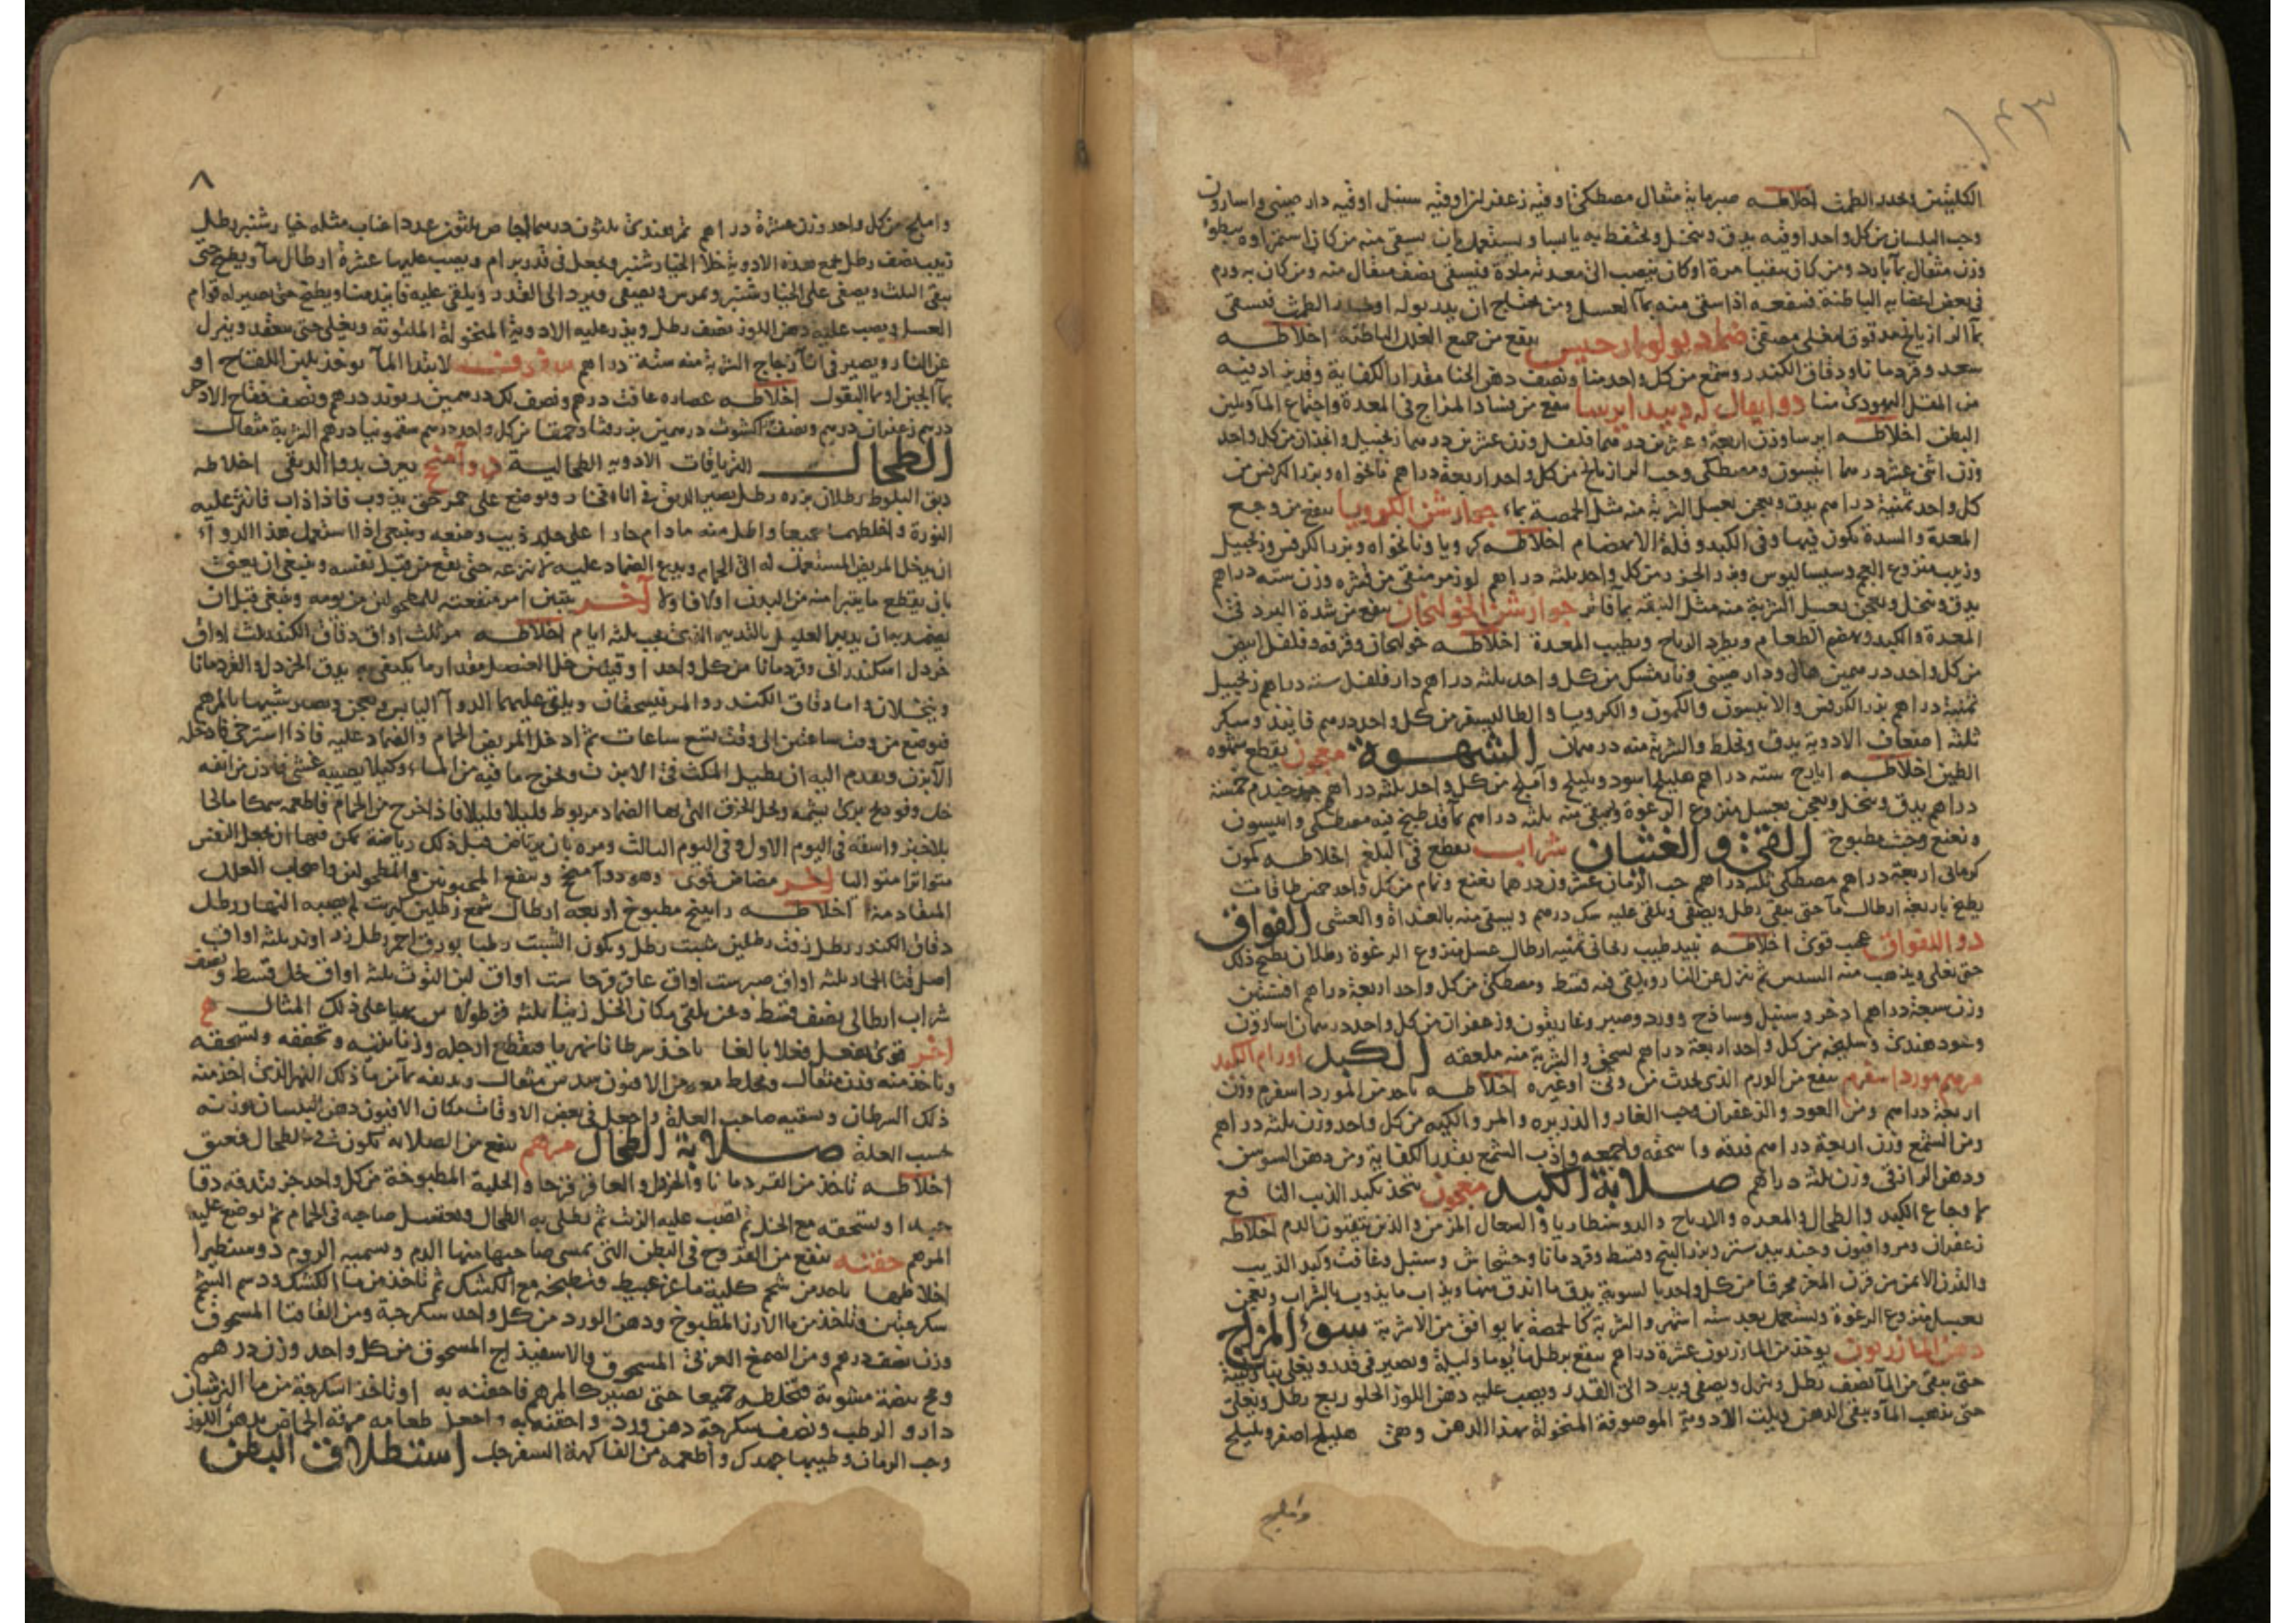 الكليتين ويحدر الطمث اخلاطه صبر مايه مثقال مصطكى اوقيه زعفران اوقيه سنبل اوقيه دارصيني واسارون
وحب البلسان من كل واحد اوقيه يدق وينخل ويحتفظ به يابسا ويستعمل بان يسقى منه من كان
وزن مثقال بماء بارد ومن كان مرة او كان ينصب الى معدته مادة فيسقى نصف مثقال منه ومن كان به ورم
في بعض اعضايه الباطنة اذا سقى منه بماء العسل ومن يحتاج ان يدر بوله او يحدر الطمث فيسقى
بماء الرازيانج ضماد ينفع من جميع العلل الباطنة اخلاطه
سعد وقردمانا ودقاق الكندر وشمع من كل واحد منا ونصف دهن الحنا مقدار الكفاية
من المقل اليهودي منا ينفع من فساد المزاج في المعدة واجتماع الماء بين
البطن اخلاطه ايرسا وزن اربعة وعشرين درهما فلفل وزن عشرين درهما زنجبيل وانجدان من كل واحد
وزن اثنى عشر درهما انيسون ومصطكى وحب الرازيانج من كل واحد اربعة دراهم نانخواه وبزر الكرفس من
كل واحد ثمنية دراهم يدق ويعجن بعسل الشربة منه مثل الحمصة بماء جوارشن الكرويا ينفع من وجع
المعدة والسدة تكون فيها وفي الكبد وقلة الانهضام اخلاطه كرويا ونانخواه وبزر الكرفس وزنجبيل
وزبيب منزوع العجم وسساليوس وبزر الجزر من كل واحد ثلثة دراهم لوز مر منقى من قشره وزن ستة دراهم
يدق وينخل ويعجن بعسل الشربة منه مثل النبقة بماء فاتر جوارشن الخولنجان ينفع من شدة البرد في
المعدة والكبد ويهضم الطعام ويطرد الرياح ويطيب المعدة اخلاطه خولنجان وقرفه وفلفل ابيض
من كل واحد درهمين هال ودارصيني ونارمشك من كل واحد ثلثة دراهم دارفلفل ستة دراهم زنجبيل
ثمنية دراهم بزر الكرفس والانيسون والكمون والكرويا من كل واحد درهم فانيذ وسكر
ثلثة اضعاف الادوية يدق ويخلط والشربة منه درهمان الشهوة معجون يقطع شهوة
الطين اخلاطه ايارج ستة دراهم هليلج اسود وبليلج وآملج من كل واحد ثلثة دراهم
دراهم يدق وينخل ويعجن بعسل منزوع الرغوة ويسقى منه ثلثة دراهم بماء قد طبخ فيه مصطكى وانيسون
ونعنع مطبوخ القيء والغثيان شراب يقطع قي البلغم اخلاطه كمون
كرماني اربعة دراهم مصطكى ثلثة دراهم حب الرمان عشرون درهما نعنع ونمام من كل واحد خمس طاقات
يطبخ باربعة ارطال ماء حتى يبقى رطل ويصفى ويلقى عليه سك درهم ويسقى منه بالغداة والعشى الفواق
دوا للفواق عجيب قوى اخلاطه نبيد طيب ريحاني ثمنية ارطال عسل منزوع الرغوة رطلان يطبخ ذلك
حتى يغلى ويذهب منه السدس ثم ينزل عن النار ويلقى فيه قسط ومصطكى من كل واحد اربعة دراهم افسنتين
وزن سبعة دراهم اذخر وسنبل وساذج وورد وصبر وغاريقون وزعفران من كل واحد درهمان اسارون
وعود هندى وسليخه من كل واحد اربعة دراهم يسحق والشربة منه ملعقه الكبد اورام الكبد
مرهم مورد اسفرم ينفع من الورم الذى يحدث من او غيره اخلاطه تاخذ من المورد اسفرم وزن
اربعة دراهم ومن العود والزعفران وحب الغار والذريره والمر والكيه من كل واحد وزن ثلثة دراهم
ومن الشمع وزن اربعة دراهم فدقه واسحقه واجمعه واذب الشمع بقدر الكفاية ومن دهن السوسن
ودهن الرازقى وزن ثلثة دراهم صلابة الكبد معجون يتخذ بكبد الذيب النافع
من اوجاع الكبد والطحال والمعده والارياح والدوسنطاريا والسعال المزمن والذين يتقيون الدم اخلاطه
زعفران ومر وافيون وجندبيدستر وبزر البنج وقسط وقردمانا وخشخاش وسنبل وغافت وكبد الذيب
والقرن الايمن من قرن المعز محرقا من كل واحد بالسوية يدق ما اندق منها ويذاب ما يذوب بالشراب ويعجن
بعسل منزوع الرغوة ويستعمل بعد ستة اشهر والشربة كالحمصة بما يوافق من الاشربة سوء المزاج
دهن المازريون يوخذ من المازريون عشرة دراهم ينقع برطل ماء يوما وليلة ويصير في قدر ويغلى
حتى يبقى من الماء نصف رطل وينزل ويصفى ويرد الى القدر ويصب عليه دهن اللوز الحلو ربع رطل ويغلى
حتى يذهب الماء ويبقى الدهن ويلت الادوية الموصوفة المنخولة بهذا الدهن وهى هليلج اصفر وبليلج
واملج
٨
واملج من كل واحد وزن عشرة دراهم تمر هندى ثلثون درهما اجاص ثلثون عددا عناب مثله خيارشنبر رطل
زبيب نصف رطل يجمع هذه الادوية خلا الخيارشنبر ويجعل في قدر برام ويصب عليها عشرة ارطال ماء ويطبخ حتى
يبقى الثلث ويصفى على الخيارشنبر ويمرس ويصفى ويرد الى القدر ويلقى عليه فانيذ منا ويطبخ حتى يصير له قوام
العسل ويصب عليه دهن اللوز نصف رطل ويذر عليه الادوية المنخولة الملتوتة ويغلى حتى ينعقد وينزل
عن النار ويصير في اناء زجاج الشربة منه ستة دراهم لابتدا الماء يوخذ بلبن اللقاح او
بماء الجبن او بماء البقول اخلاطه عصاره غافت درهم ونصف لك درهمين ريوند درهم ونصف فقاح الاذخر
درهم زعفران درهم ونصف اكشوث درهمين من كل واحد درهم سقمونيا درهم الشربة مثقال
الطحال الترياقات الادويه الطحالية يعرف بدوا الدبقى اخلاطه
دبق البلوط رطلان نوره رطل يصير الدبق في اناء فخار ويوضع على جمر حتى يذوب فاذا ذاب فانثر عليه
النورة واخلطهما جميعا واطل منه ما دام حارا على جلد وضعه وينبغى اذا استعمل هذا الدوآء
ان يدخل المريض المستعمل له الى الحمام ويدع الضماد عليه لا تنزعه حتى يقع من قبل نفسه وينبغى ان يعنى
بان يقطع ما يتبرا منه من البدن اولا فاولا آخر يتبين امر منفعته للمطحولين من يومه وينبغى قبل ان
يضمد به ان يدبر العليل بالتدبير الذى يجب ثلثة ايام اخلاطه مر ثلث اواق دقاق الكندر ثلث اواق
خردل اسكندرانى وقردمانا من كل واحد اوقيتين خل العنصل مقدار ما يكتفى به يدق الخردل والقردمانا
وينخلان واما دقاق الكندر والمر فيسحقان ويلقى عليهما الدوآ اليابس ويعجن ويصير شبيها بالمرهم
فيوضع من وقت ساعتين الى وقت تسع ساعات ثم ادخل المريض الحمام والضماد عليه فاذا استرخى فادخله
الآبزن وتقدم اليه ان يطيل المكث في الابزن ويخرج ما فيه من الماء وكيلا يصيبه غشى فادن من انفه
خل وفودنج برى يشمه وتحل الخرق التي بها الضماد مربوط قليلا قليلا فاذا خرج من الحمام فاطعمه سمكا مالحا
بلا خبز واسقه في اليوم الاول وفي اليوم الثالث ومره بان يرتاض قبل ذلك رياضة يمكن فيها ان يجعل النفس
متواترا متواليا آخر مضاض قوى وهو دوآ ينفع المجنونين والمطحولين واصحاب العلل
المتقادمة اخلاطه راتينج مطبوخ اربعة ارطال شمع رطلين كبريت لم يصبه النار رطل
دقاق الكندر رطل زفت رطلين شبث رطل ويكون الشبت رطبا بورق احمر رطل زراوند ثلثة اواق
اصل قثا الحمار ثلثة اواق صبر ست اواق عاقرقرحا ست اواق لبن التوث ثلثة اواق خل قسط ونصف
شراب ايطالى نصف قسط وعن يلقى مكان الخل زيتا ثلثة على ذلك المثال
آخر قوى يفعل فعلا بالغا ياخذ سرطانا نهريا فتقطع ارجله وزنابتيه وتجففه وتسحقه
وتاخذ منه وزن مثقال ويخلط معه من الافيون سدس مثقال وتديفه بماء من ماء ذلك النهر الذى اخذ منه
ذلك السرطان وتسقيه صاحب العلة واجعل في بعض الاوقات مكان الافيون دهن البلسان وزنه
حسب العلة صلابة الطحال مرهم ينفع من الصلابه تكون في الطحال
اخلاطه تاخذ من القردمانا والخردل والعاقرقرحا والحلبة المطبوخة من كل واحد جزء وتدقه دقا
جيدا وتسحقه مع الخل ثم تصب عليه الزيت ثم تطلى به الطحال ويغتسل صاحبه في الحمام ثم توضع عليه
المرهم حقنه تنفع من القروح في البطن التي يمشى صاحبها منها الدم ويسميه الروم دوسنطيرا
اخلاطها تاخذ من شحم كلية ماعز عبيط وتطبخه مع الكشك ثم تاخذ من ماء الكشك ودسم الشحم
سكرجتين وتاخذ من ماء الارز المطبوخ ودهن الورد من كل واحد سكرجة ومن القاقيا المسحوق
وزن نصف درهم ومن الصمغ العربي المسحوق والاسفيذاج المسحوق من كل واحد وزن درهم
ومح بيضة مشوية فتخلطه جميعا حتى تصير كالمرهم فاحقنه به او تاخذ اسكرجة من ماء البرشيان
دارو الرطب ونصف سكرجة دهن ورد واحقنه به واجعل طعامه مرقة الحماض بدهن اللوز
وحب الرمان وطيبها جهدك واطعمه من الفاكهة السفرجل استطلاق البطن